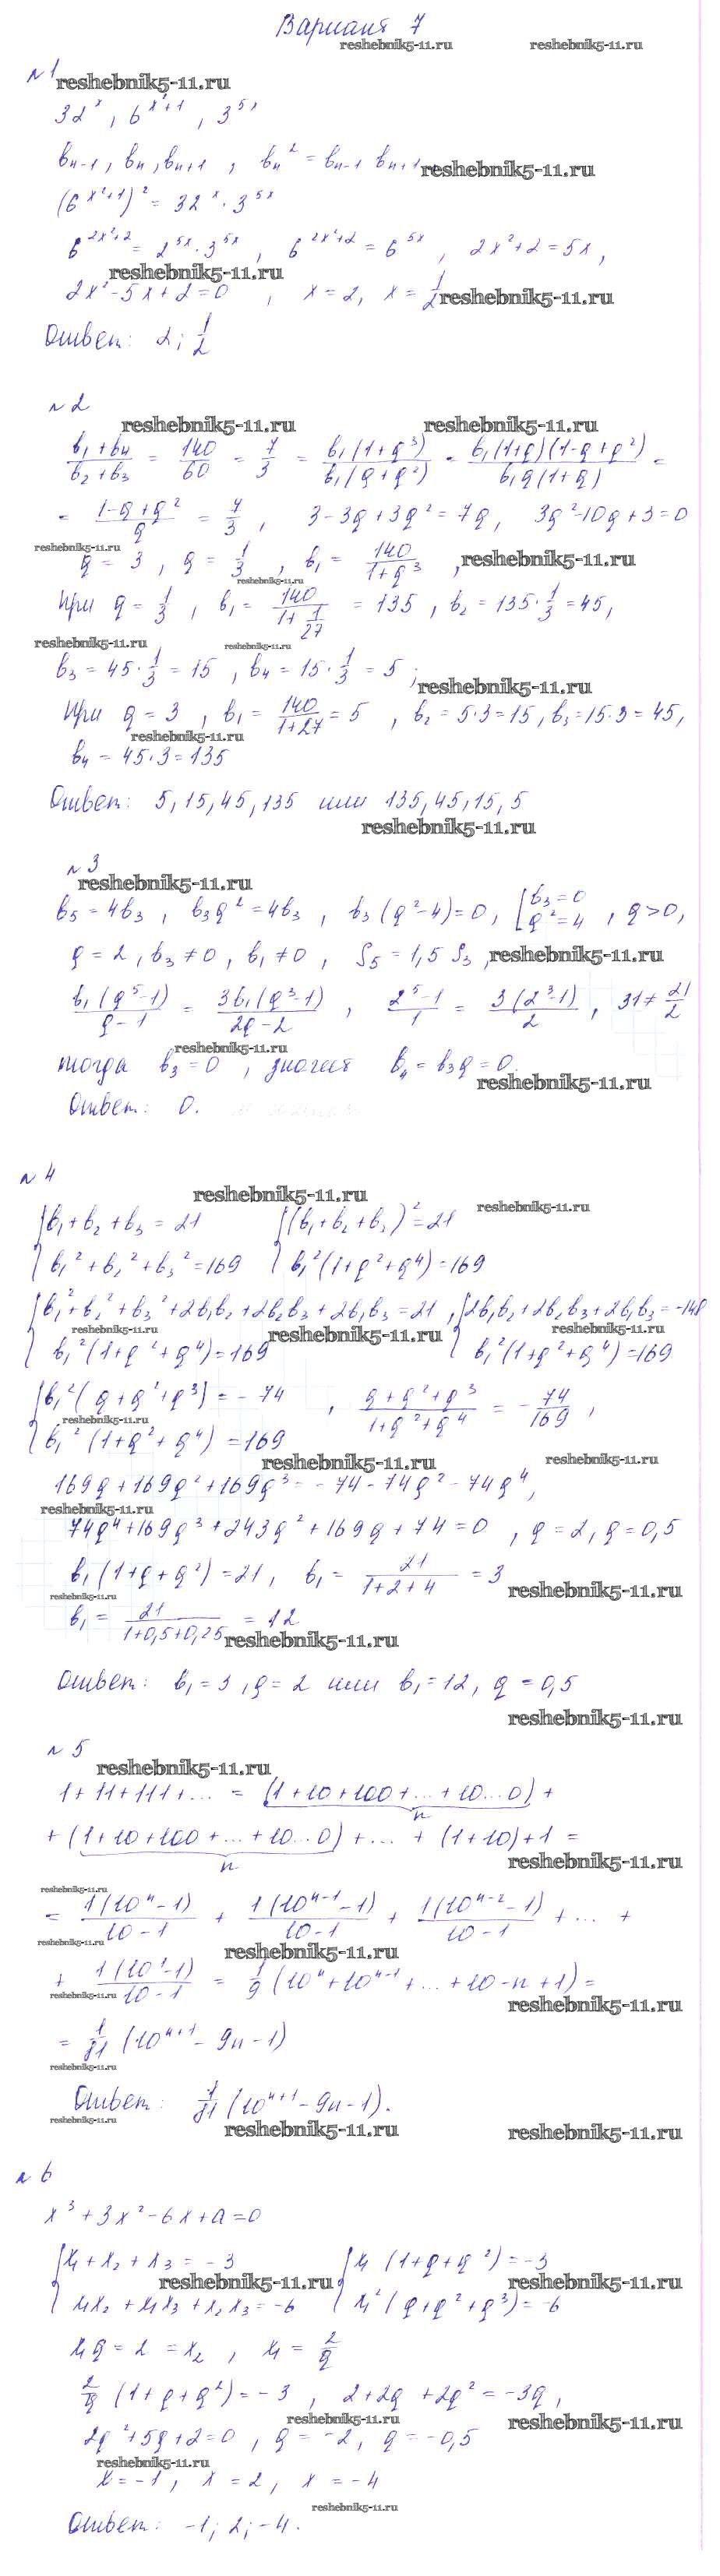 Вариант 7
reshebnik5-11.ru reshebnik5-11.ru
№1 reshebnik5-11.ru
32^x, 6^(x²+1), 3^(5x)
bₙ₋₁, bₙ, bₙ₊₁, bₙ² = bₙ₋₁ bₙ₊₁ reshebnik5-11.ru
(6^(x²+1))² = 32^x · 3^(5x)
6^(2x²+2) = 2^(5x) · 3^(5x), 6^(2x²+2) = 6^(5x), 2x²+2=5x,
reshebnik5-11.ru
2x²-5x+2=0, x=2, x=1/2 reshebnik5-11.ru
Ответ: 2; 1/2
№2
reshebnik5-11.ru reshebnik5-11.ru
(b₁+b₄)/(b₂+b₃) = 140/60 = 7/3 = b₁(1+q³)/(b₁(q+q²)) = b₁(1+q)(1-q+q²)/(b₁q(1+q)) =
= (1-q+q²)/q = 7/3, 3-3q+3q²=7q, 3q²-10q+3=0
reshebnik5-11.ru
q=3, q=1/3, b₁ = 140/(1+q³), reshebnik5-11.ru
reshebnik5-11.ru
при q=1/3, b₁ = 140/(1+1/27) = 135, b₂ = 135·1/3 = 45,
reshebnik5-11.ru reshebnik5-11.ru
b₃ = 45·1/3 = 15, b₄ = 15·1/3 = 5;
reshebnik5-11.ru
при q=3, b₁ = 140/(1+27) = 5, b₂ = 5·3 = 15, b₃ = 15·3 = 45,
reshebnik5-11.ru
b₄ = 45·3 = 135
Ответ: 5, 15, 45, 135 или 135, 45, 15, 5
reshebnik5-11.ru
№3
reshebnik5-11.ru
b₅=4b₃, b₃q²=4b₃, b₃(q²-4)=0, [b₃=0 q²=4, q>0,
q=2, b₃≠0, b₁≠0, S₅=1,5 S₃, reshebnik5-11.ru
b₁(q⁵-1)/(q-1) = 3b₁(q³-1)/(2q-2), (2⁵-1)/1 = 3(2³-1)/2, 31≠21/2
reshebnik5-11.ru
тогда b₃=0, значит b₄=b₃q=0.
reshebnik5-11.ru
Ответ: 0.
№4
reshebnik5-11.ru reshebnik5-11.ru
{b₁+b₂+b₃=21 {(b₁+b₂+b₃)²=21
b₁²+b₂²+b₃²=169 b₁²(1+q²+q⁴)=169
{b₁²+b₂²+b₃²+2b₁b₂+2b₂b₃+2b₁b₃=21, {2b₁b₂+2b₂b₃+2b₁b₃=-148
reshebnik5-11.ru reshebnik5-11.ru reshebnik5-11.ru
b₁²(1+q²+q⁴)=169 b₁²(1+q²+q⁴)=169
{b₁²(q+q²+q³)=-74, (q+q²+q³)/(1+q²+q⁴) = -74/169,
reshebnik5-11.ru
b₁²(1+q²+q⁴)=169
reshebnik5-11.ru reshebnik5-11.ru
169q+169q²+169q³=-74-74q²-74q⁴,
reshebnik5-11.ru
74q⁴+169q³+243q²+169q+74=0, q=2, q=0,5
b₁(1+q+q²)=21, b₁ = 21/(1+2+4) = 3
reshebnik5-11.ru reshebnik5-11.ru
b₁ = 21/(1+0,5+0,25) = 12
reshebnik5-11.ru
Ответ: b₁=3, q=2 или b₁=12, q=0,5
reshebnik5-11.ru
№5
reshebnik5-11.ru
1+11+111+... = (1+10+100+...+10...0) +
n
+ (1+10+100+...+10...0) + ... + (1+10)+1 =
n reshebnik5-11.ru
reshebnik5-11.ru
= 1(10ⁿ-1)/(10-1) + 1(10ⁿ⁻¹-1)/(10-1) + 1(10ⁿ⁻²-1)/(10-1) + ... +
reshebnik5-11.ru reshebnik5-11.ru
+ 1(10¹-1)/(10-1) = 1/9 (10ⁿ+10ⁿ⁻¹+...+10-n+1) =
reshebnik5-11.ru reshebnik5-11.ru
= 1/81 (10ⁿ⁺¹-9n-1)
reshebnik5-11.ru
Ответ: 1/81 (10ⁿ⁺¹-9n-1).
reshebnik5-11.ru reshebnik5-11.ru reshebnik5-11.ru
№6
x³+3x²-6x+a=0
{x₁+x₂+x₃=-3 {x₁(1+q+q²)=-3
reshebnik5-11.ru reshebnik5-11.ru
x₁x₂+x₁x₃+x₂x₃=-6 x₁²(q+q²+q³)=-6
x₁q=2=x₂, x₁=2/q
2/q (1+q+q²)=-3, 2+2q+2q²=-3q,
reshebnik5-11.ru reshebnik5-11.ru
2q²+5q+2=0, q=-2, q=-0,5
reshebnik5-11.ru
x=-1, x=2, x=-4
reshebnik5-11.ru
Ответ: -1; 2; -4.